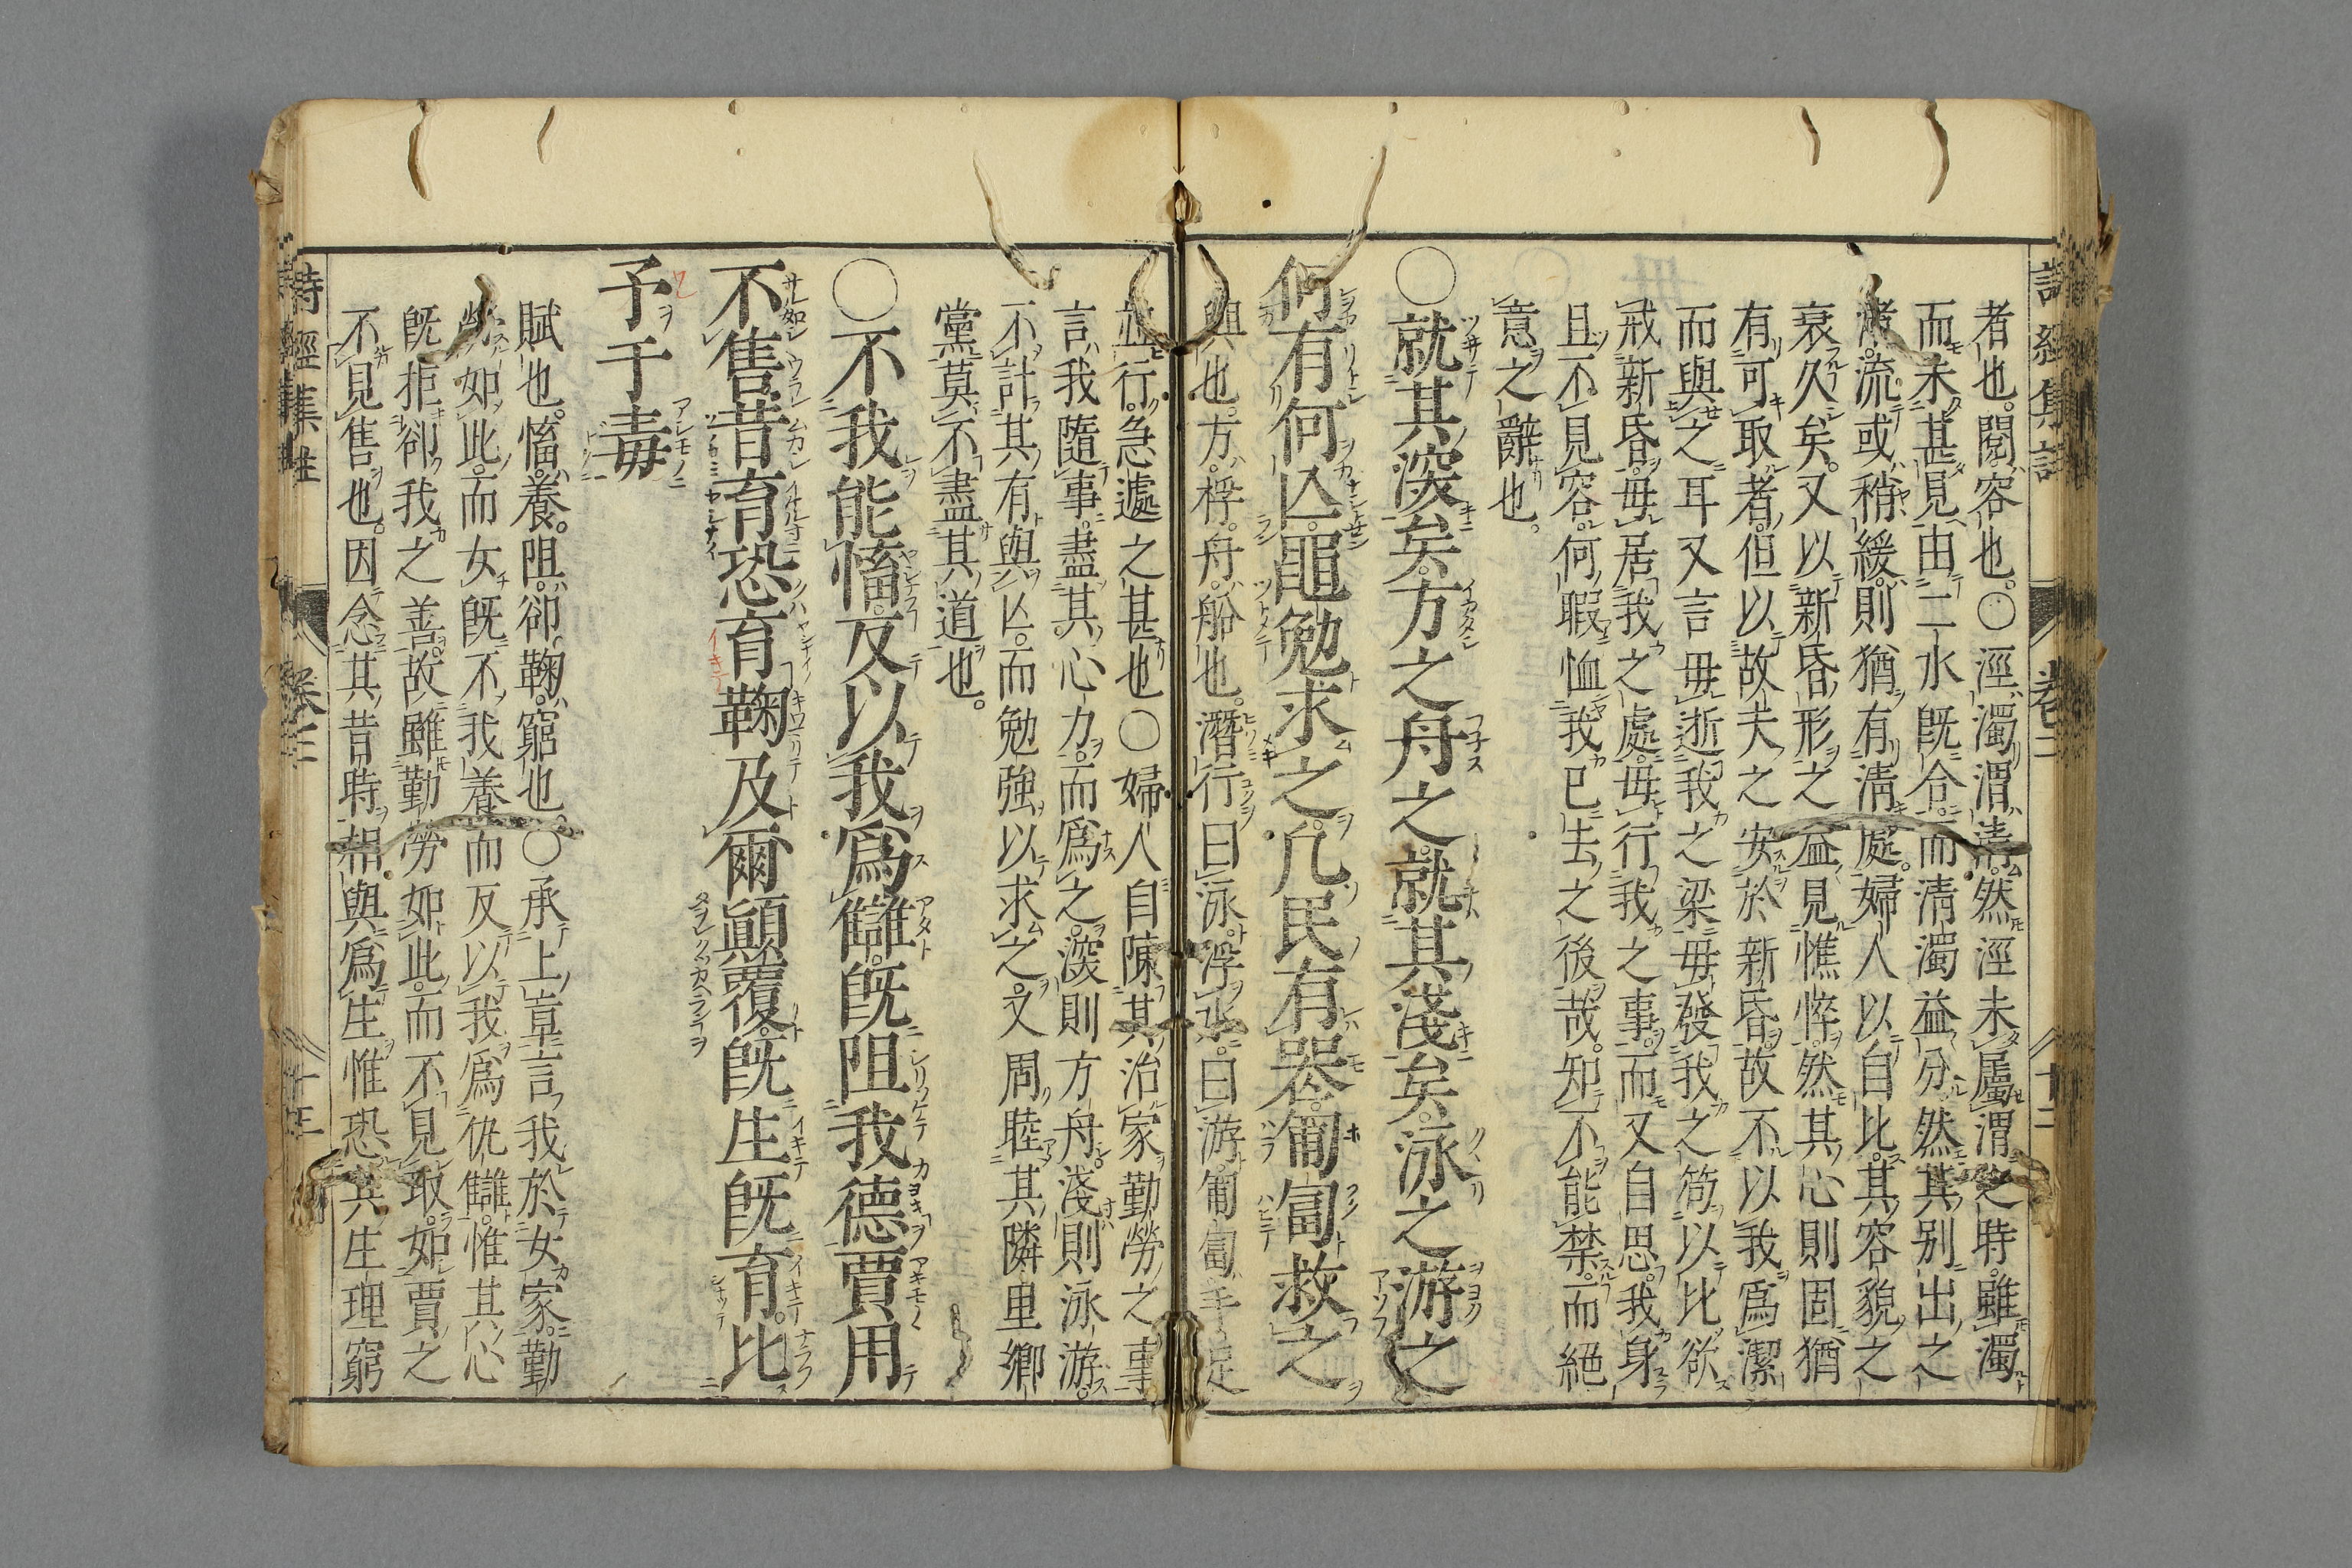 詩經集註 卷二 十二
者也。閱。容也。○涇濁渭清。然涇未屬渭之時。雖濁
而未甚見。由二水既合。而清濁益分。然其別出之
渚。流或稍緩。則猶有清處。婦人以自比。其容貌之
衰久矣。又以新昏形之。益見憔悴。然其心則固猶
有可取者。但以故夫之安於新昏。故不以我爲潔
而與之耳。又言毋逝我之梁。毋發我之笱。以比欲
戒新昏。毋居我之處。毋行我之事。而又自思。我身
且不見容。何暇恤我已去之後哉。知不能禁。而絕
意之辭也。
○就其深矣。方之舟之。就其淺矣。泳之游之。
何有何亾。黽勉求之。凡民有喪。匍匐救之
興也。方。桴。舟。船也。潛行曰泳。浮水曰游。匍匐。手足
並行。急遽之甚也○婦人自陳其治家勤勞之事
言我隨事盡其心力。而爲之。深則方舟。淺則泳游。
不計其有與亾。而勉強以求之。又周睦其隣里鄉
黨。莫不盡其道也。
○不我能慉。反以我爲讎。既阻我德。賈用
不售。昔育恐育鞠。及爾顚覆。既生既育。比
予于毒
賦也。慉。養。阻。卻。鞠。窮也。○承上章言。我於女家。勤
勞如此。而女既不我養。而反以我爲仇讎。惟其心
既拒卻我之善。故雖勤勞如此。而不見取。如賈之
不見售也。因念其昔時相與爲生。惟恐其生理窮
詩經集註 卷二 十三